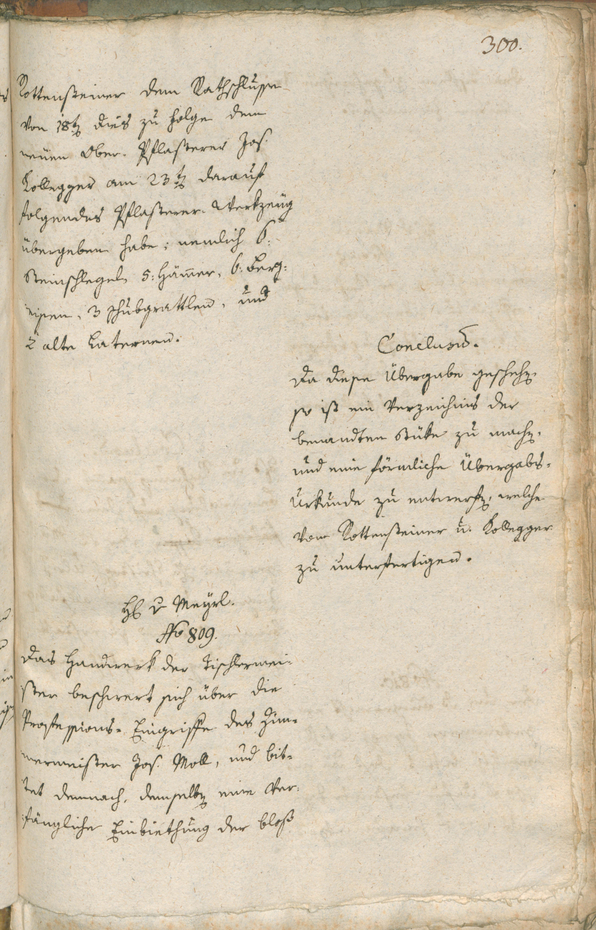 300.
Rottensteiner dem Rathschlusse
von 18t dies zu folge dem
neuen Ober-Pflasterer Jos.
Kollegger am 23t darauf
folgendes Pflasterer-Werkzeug
übergeben habe; nemlich 6:
Steinschlegel, 5: Hämer, 6: Berg-
eisen, 3 Schubgrattlen, und
2 alte Laternen.
Conclusũ.
Da diese Übergabe geschehen,
so ist ein Verzeichnis der
benandten Stüke zu machen,
und eine förmliche Übergabs-
Urkunde zu entwerfen, welche
vom Rottensteiner u: Kollegger
zu unterfertigen.
H v Meyrl.
No 809.
Das Handwerk der Tischlermei-
ster beschwert sich über die
Professions-Eingriffe des Zim-
mermeister Jos. Moll, und bit-
tet demnach, demselben eine Ver-
fängliche Einbiethung der bloß